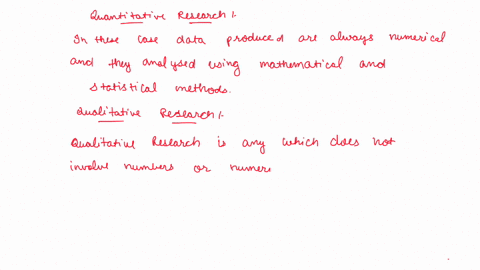 Quantitative Research :-
In these case data produced are always numerical
and they analysed using mathematical and
statistical methods.
Qualitative Research :-
Qualitative Research is any which does not
involve numbers or numeri